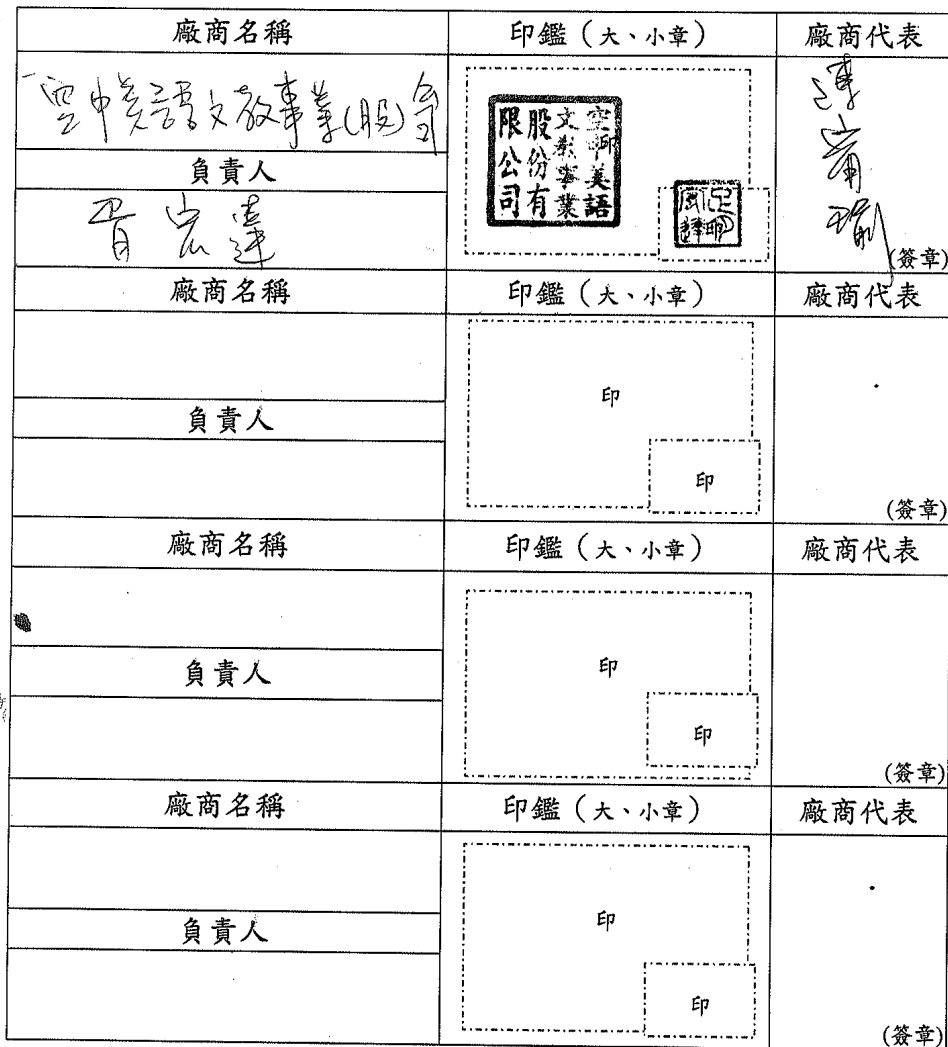 廠商名稱 印鑑（大、小章） 廠商代表
空中美語文教事業(股)公司
空中美語
文教事業
股份有
限公司
負責人
(簽章)
廠商名稱 印鑑（大、小章） 廠商代表
印
負責人
印
(簽章)
廠商名稱 印鑑（大、小章） 廠商代表
印
負責人
印
(簽章)
廠商名稱 印鑑（大、小章） 廠商代表
印
負責人
印
(簽章)